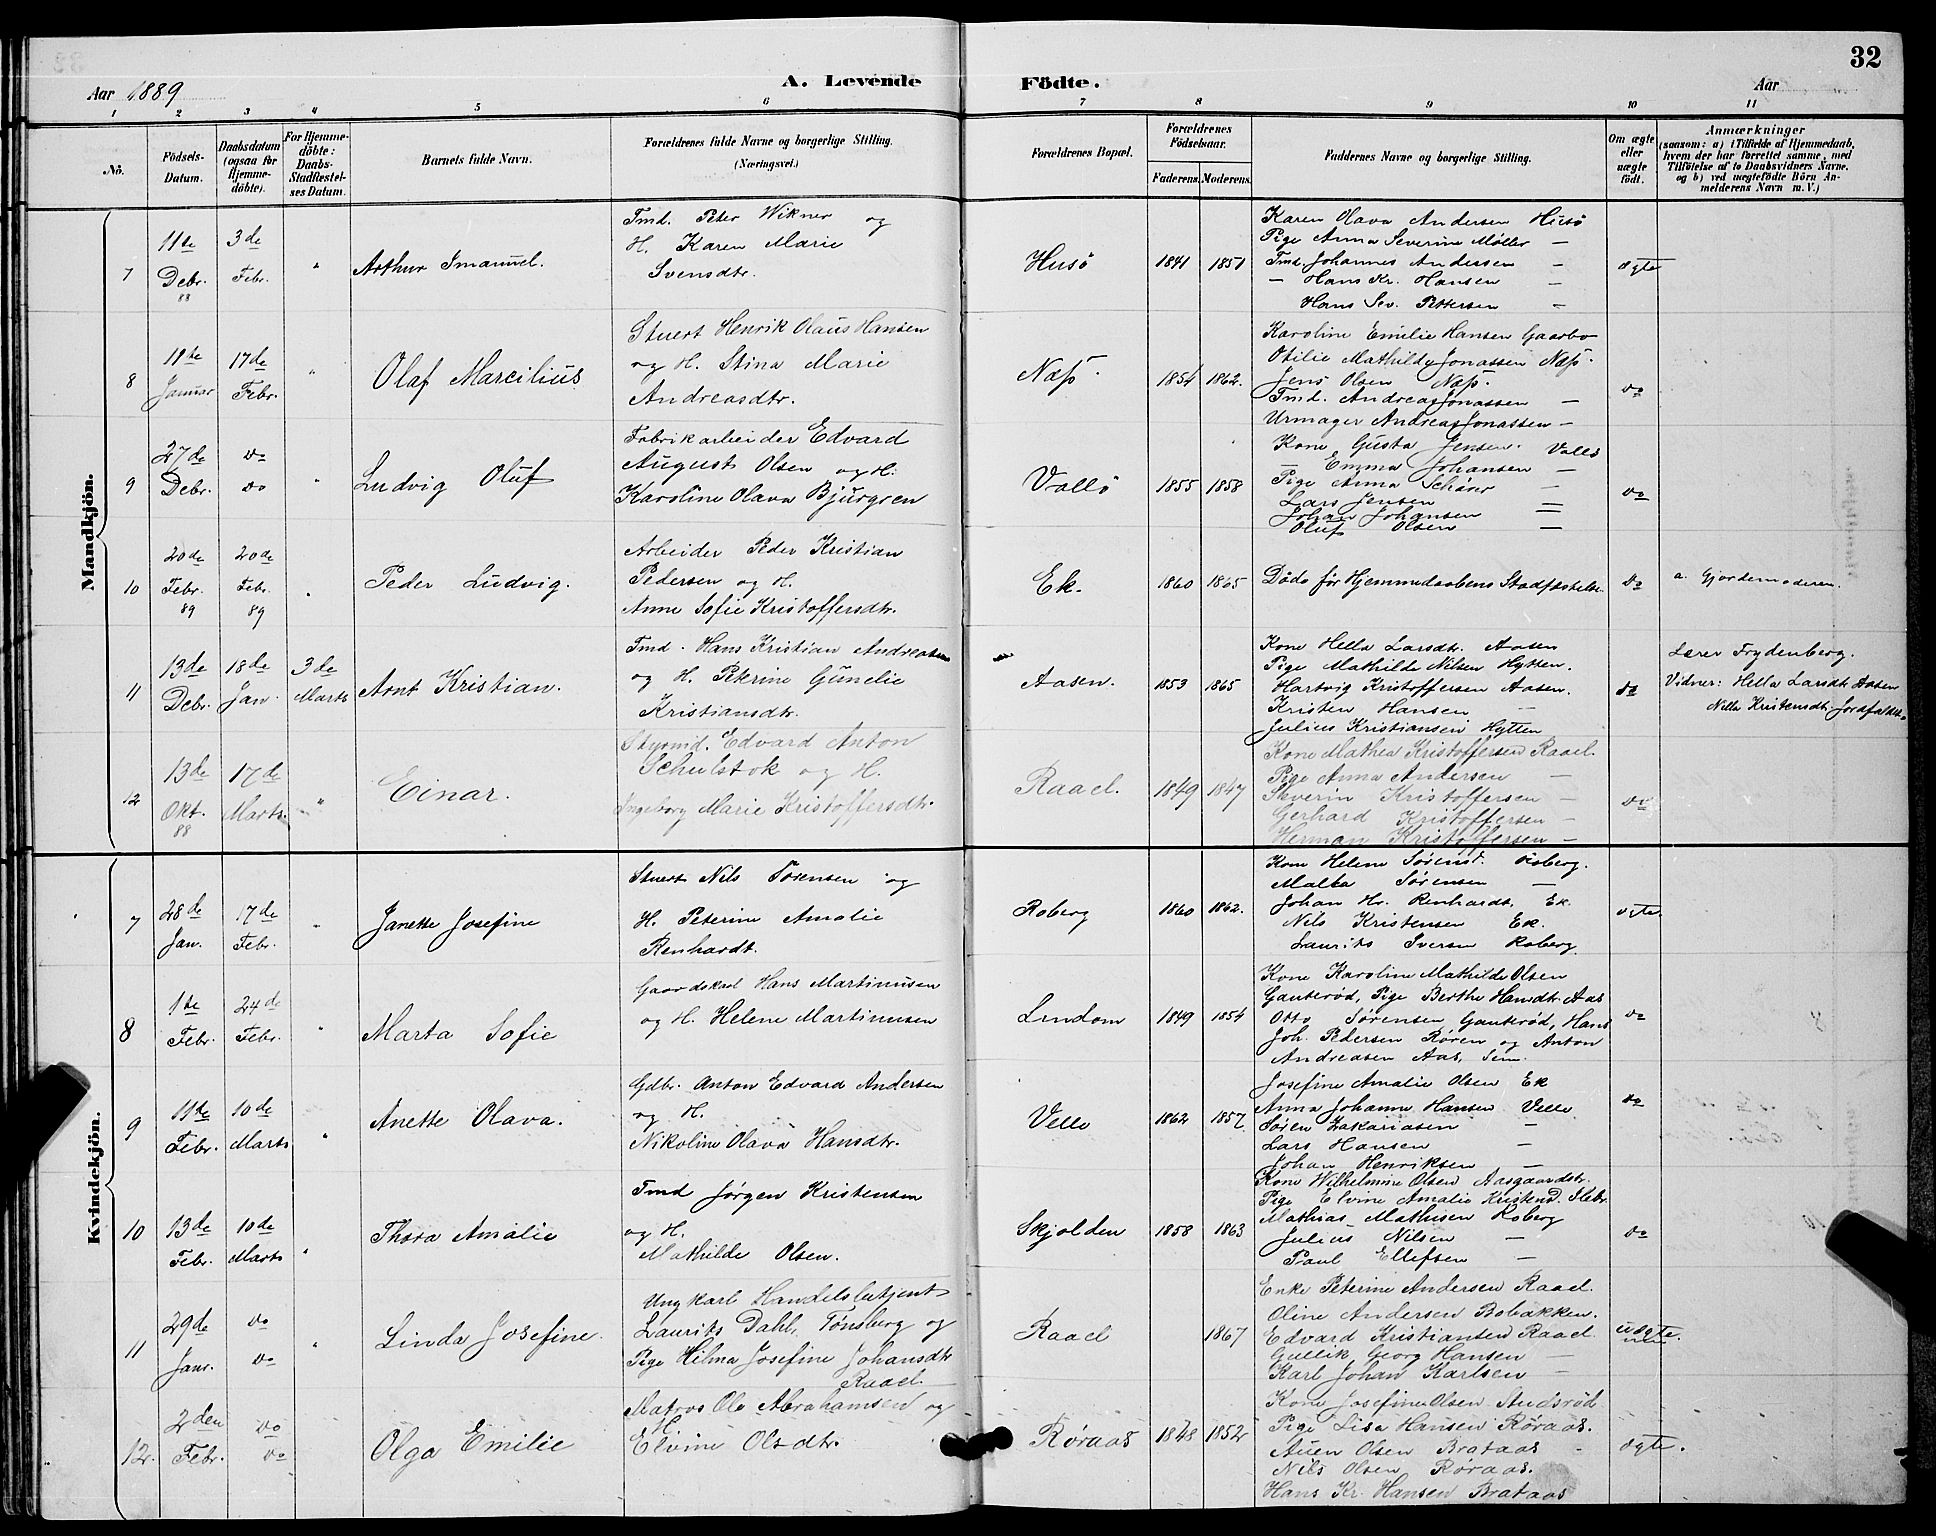 32
Aar 1889
A. Levende Födte.
Aar
1 2 3 4 5 6 7 8 9 10 11
No.
Födsels-Datum.
Daabsdatum (ogsaa for Hjemme-döbte).
For Hjemme-döbte: Daabs-Stadfæstel-ses Datum.
Barnets fulde Navn.
Forældrenes fulde Navne og borgerlige Stilling.
(Næringsvei.)
Forældrenes Bopæl.
Forældrenes Födselsaar.
Faderens. Moderens.
Faddernes Navne og borgerlige Stilling.
Om ægte eller uægte födt.
Anmærkninger
(saasom: a) i Tilfælde af Hjemmedaab, hvem der har forrettet samme, med Tilföielse af to Daabsvidners Navne, og b) ved uægtefödte Börn An-melderens Navn m. V.)
Mandkjön.
7 11te Debr. 88 3de Febr. " Arthur Imanuel.
Tmd. Peter Wikner og
H. Karen Marie
Svensdtr.
Husö 1841 1851
Karen Olava Andersen Husö
Pige Anna Severine Møller —
Tmd. Johannes Andersen —
— Hans Kr. Hansen —
Hans Sev. Pettersen —
ægte
8 11te Januar 17de Febr. " Olaf Marcilius
Stuert Henrik Olaus Hansen
og H. Stina Marie
Andreasdtr.
Næss. 1854 1862.
Karoline Emilie Hansen Gaarbo
Otilie Mathilde Jonassen Næss.
Jens Olsen Næss.
Tmd. Andreas Jonassen —
Urmager Andreas Jonassen —
do
9 27de Debr. do do " Ludvig Oluf
Fabrikarbeider Edvard
August Olsen og H.
Karoline Olava Bjurgren
Vallö 1855 1858
Kone Gusta Jensen. Vallö
— Emma Johansen —
Pige Anna Schører —
Lars Jensen —
Johan Johansen —
Oluf Olsen —
do
10 20de Febr. 89 20de Febr. 89 " Peder Ludvig.
Arbeider Peder Kristian
Pedersen og H.
Anne Sofie Kristoffersdtr.
Ek. 1860 1865
Döde før Hjemmedaabens Stadfæstelse.
do
a. Gjordemoderen.
11 13de Debr. 18de Jan. 3de Marts Arnt Kristian.
Tmd. Hans Kristian Andreasen
og H. Peterine Gunelie
Kristiansdtr.
Aasen. 1853 1865
Kone Hella Larsdtr. Aasen
Pige Mathilde Nilsen Hytten.
Hartvig Kristoffersen Aasen.
Kristen Hansen —
Julius Kristiansen Hytten
do
Lærer Frydenberg.
Vidner: Hella Larsdtr Aasen
Nilla Kristensdtr. Jordfaldet.
12 13de Okt. 88 17de Marts. " Einar.
Styrmd. Edvard Anton
Schulstok og H.
Ingeborg Marie Kristoffersdtr.
Raael. 1849 1847
Kone Mathea Kristoffersen Raael.
Pige Anna Andersen —
Severin Kristoffersen —
Gerhard Kristoffersen —
Herman Kristoffersen —
do
Kvindekjön.
7 28de Jan. 17de Febr. " Janette Josefine
Stuert Nils Sørensen og
H. Peterine Amalie
Renhardt.
Roberg 1860 1862.
Kone Helene Sørensd. Roberg.
Malta Sørensen —
Johan Hr. Renhardt. Ek.
Nils Kristensen Ek.
Laurits Iversen Roberg.
ægte.
8 1te Febr. 24de Febr. " Marta Sofie
Gaardskarl Hans Martinusen
og H. Helene Martinusen
Lindom 1849 1854
Kone Karoline Mathilde Olsen
Gauterød, Pige Berthe Hansdtr. Aas
Otto Sørensen Gauterød, Hans
Joh. Pedersen Røren og Anton
Andreasen Aas, Sem.
do
9 11te Febr. 10de Marts " Anette Olava.
Gdbr. Anton Edvard Andersen
og H.
Nikoline Olava Hansdtr.
Velle 1862 1857.
Josefine Amalie Olsen Ek
Anna Johanne Hansen Velle
Søren Zakariasen —
Lars Hansen —
Johan Henriksen —
do
10 13de Febr. 10de Marts " Thora Amalie
Tmd Jørgen Kristensen
og H.
Mathilde Olsen.
Skjolden 1858 1863
Kone Wilhelmine Olsen Aasgaardstr.
Pige Elvine Amalie Kristend.
Mathias Mathisen Roberg
Julius Nilsen —
Paul Ellefsen —
do
11 29de Janr. do do " Linda Josefine.
Ungkarl Handelsbetjent
Laurits Dahl, Tønsberg og
Pige Hilma Josefine Johansdtr
Raael.
Raael 1867
Enke Peterine Andersen Raael
Oline Andersen Bobakken.
Edvard Kristiansen Raael
Gullik Georg Hansen —
Karl Johan Karlsen —
uægte.
12. 2den Febr. do do Olga Emilie
Matros Ole Abrahamsen og
H.
Elvine Olsdtr.
Røraas 1848 1852
Kone Josefine Olsen Andsrød
Pige Lisa Hansen Røraas.
Auen Olsen Brataas
Nils Olsen Røraas.
Hans Kr. Hansen Brataas
ægte.